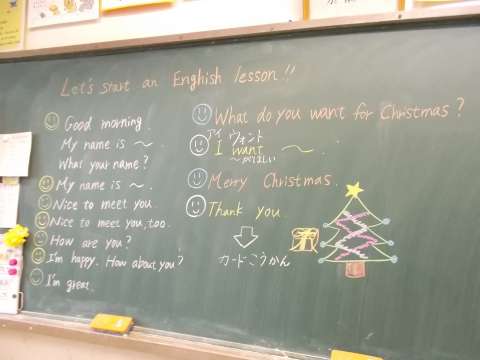 Let's start an English lesson!!
Good morning.
My name is ~.
What your name?
My name is ~.
Nice to meet you.
Nice to meet you, too.
How are you?
I'm happy. How about you?
I'm great.
What do you want for Christmas?
アイ ウォント
I want ~.
~がほしい
Merry Christmas.
Thank you.
カードこうかん